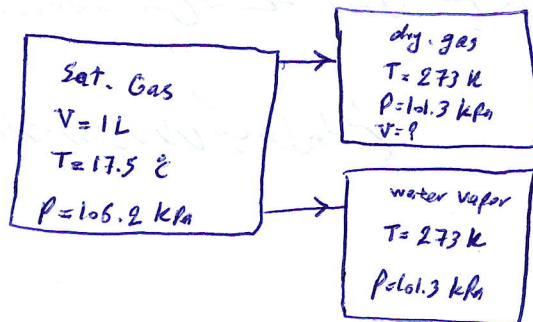 Sat. Gas
V = 1 L
T = 17.5 °C
P = 106.2 kPa
dry. gas
T = 273 K
P = 101.3 kPa
V = ?
water vapor
T = 273 K
P = 101.3 kPa